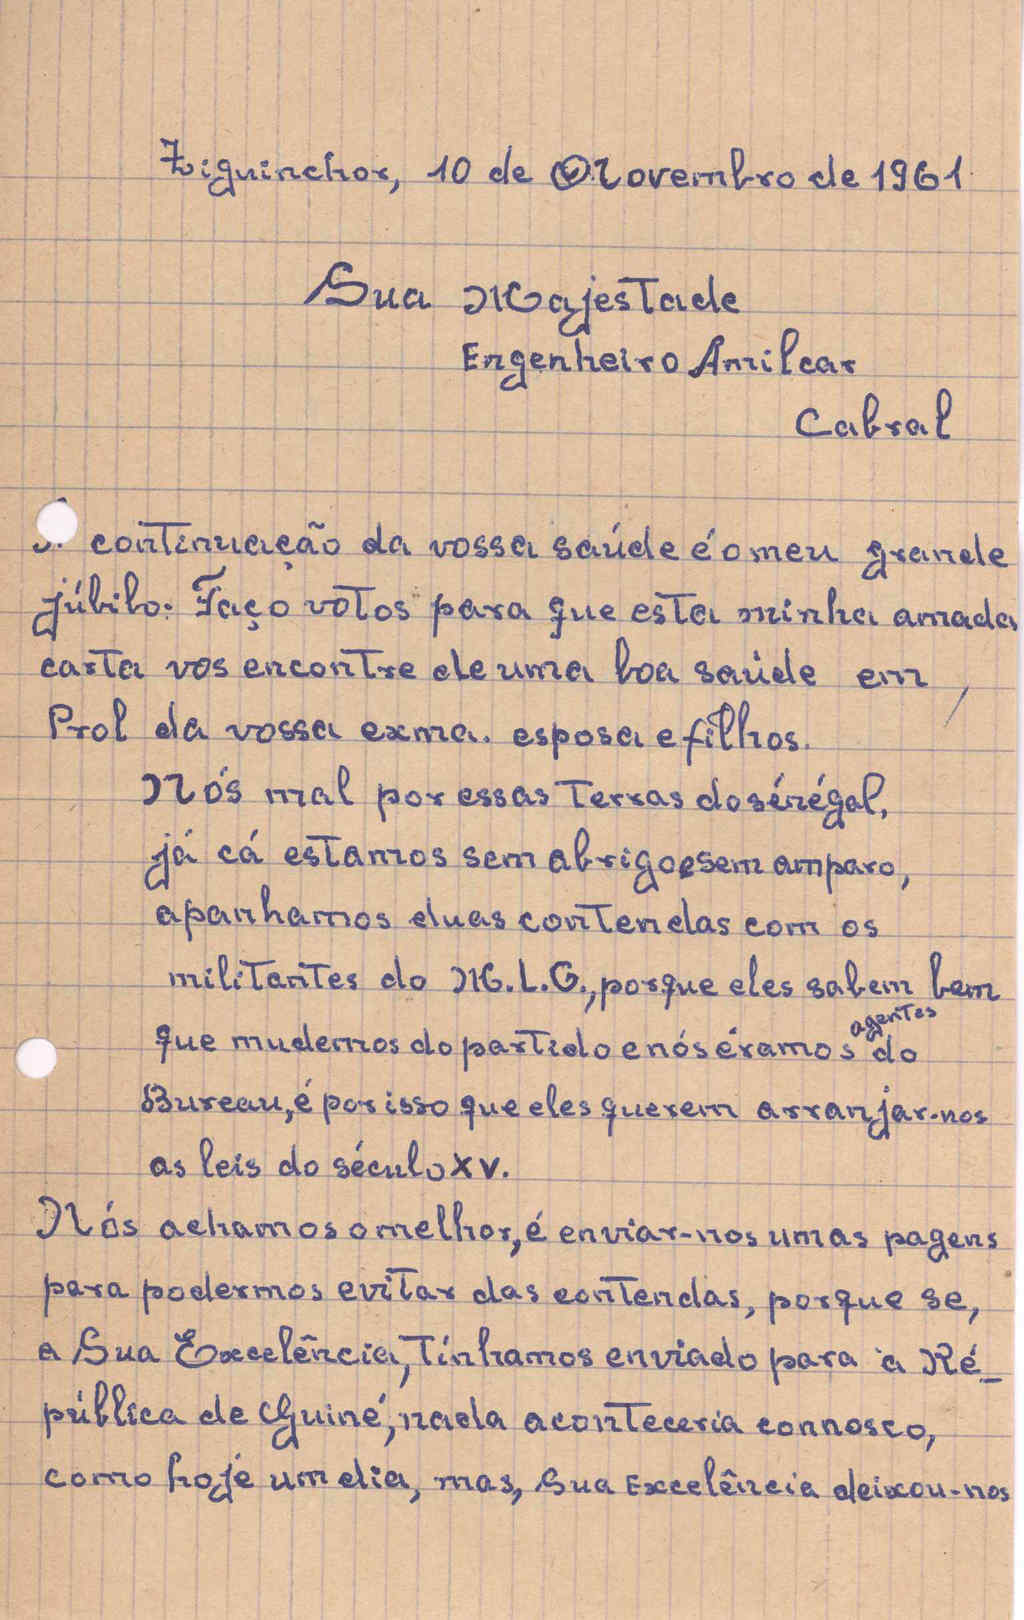 Ziguinchor, 10 de Novembro de 1961
Sua Majestade
Engenheiro Amilcar
Cabral
A continuação da vossa saúde é o meu grande
júbilo. Faço votos para que esta minha amada
carta vos encontre de uma boa saúde em
Prol da vossa exma. esposa e filhos.
Nós mal por essas terras do sénégal,
já cá estamos sem abrigo e sem amparo,
apanhamos duas contendas com os
militantes do M.L.G., porque eles sabem bem
que mudemos do partido e nós éramos agentes do
Bureau, é por isso que eles querem arranjar-nos
as leis do século XV.
Nós achamos o melhor, é enviar-nos umas pagens
para podermos evitar das contendas, porque se,
a Sua Excelência, tínhamos enviado para a Ré_
pública de Guiné, nada aconteceria connosco,
como hoje um dia, mas, Sua Excelência deixou-nos